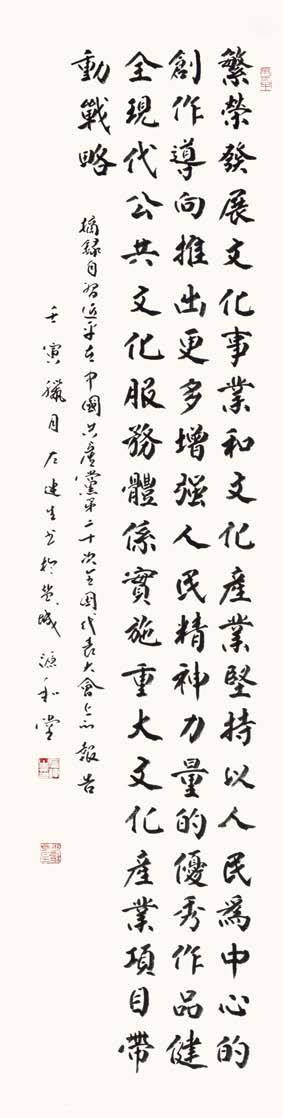 繁榮發展文化事業和文化產業堅持以人民爲中心的
創作導向推出更多增强人民精神力量的優秀作品健
全現代公共文化服務體係實施重大文化產業項目帶
動戰略
摘録自習近平在中國共產黨第二十次全國代表大會上的報告
壬寅臘月左建生書於 城源和堂